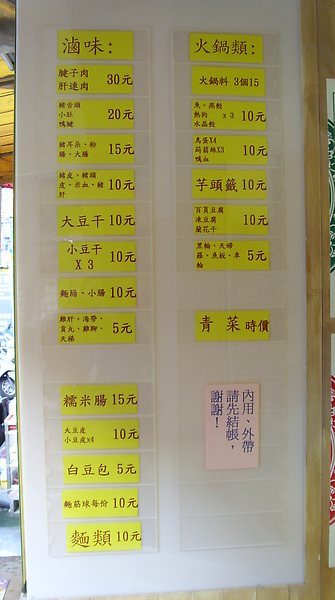 滷味:
腱子肉
肝連肉 30元
豬舌頭
小肚
鴨腱 20元
豬耳朵、粉
腸、大腸 15元
豬皮、豬頭
皮、米血、豬
肝 10元
大豆干 10元
小豆干
X 3 10元
麵腸、小腸 10元
雞肝、海帶、
貢丸、雞腳、
天梯 5元
糯米腸 15元
大豆皮
小豆皮x4 10元
白豆包 5元
麵筋球每份 10元
麵類 10元
火鍋類:
火鍋料 3個15
魚、燕餃
熱狗 x 3
水晶餃 10元
鳥蛋X4
蒟蒻絲X3
鴨血 10元
芋頭籤 10元
百頁豆腐
凍豆腐
蘭花干 10元
黑輪、天婦
羅、魚板、車
輪 5元
青菜 時價
內用、外帶
請先結帳，
謝謝!